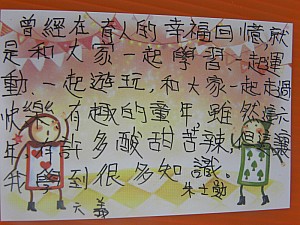 曾經在育人的幸福回憶就
是和大家一起學習、一起運
動、一起遊玩,和大家一起過
快樂有趣的童年,雖然這
年有許多酸甜苦辣 讓
我學到很多知識。
天義